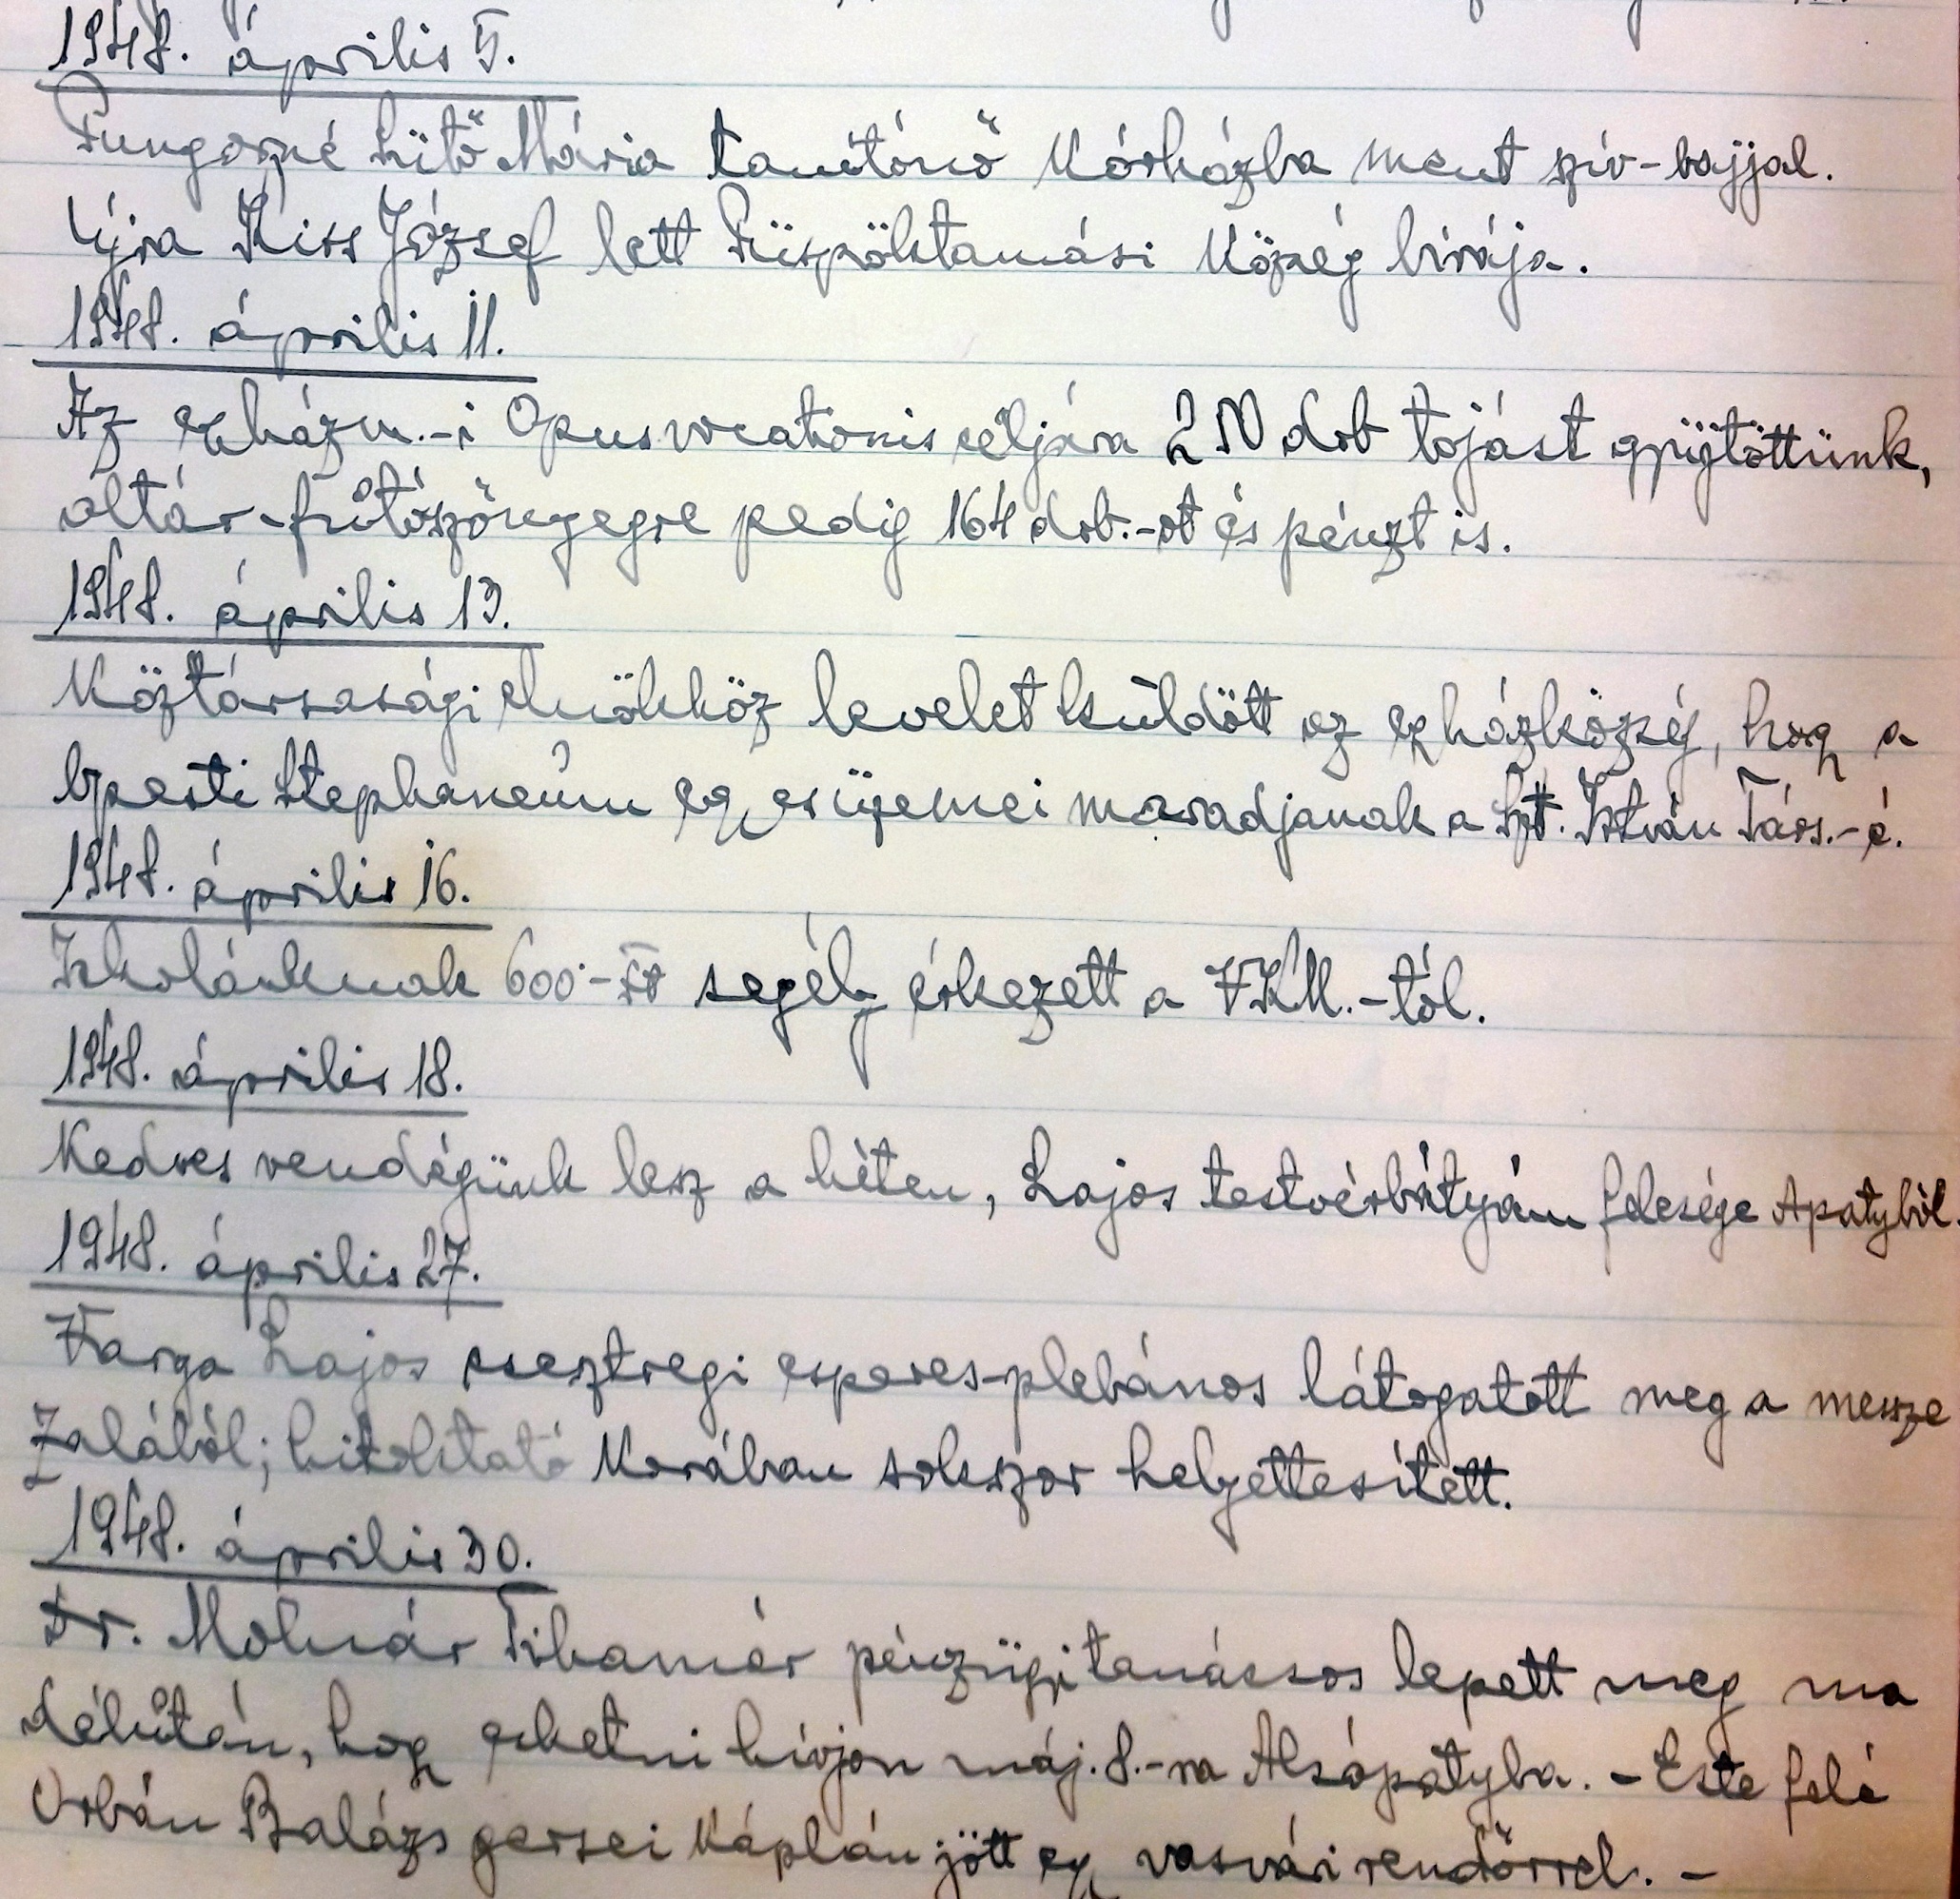 1948. április 5.
Pungorné Sitő Mária tanítónő kórházba ment szív-bajjal.
Újra Kiss József lett Püspöktamási község bírája.
1948. április 11.
Az egházm.-i Opus vocationis céljára 210 drb tojást gyüjtöttünk,
oltár-fűtőszőnyegre pedig 164 drb.-ot és pénzt is.
1948. április 13.
Köztársasági elnökhöz levelet küldött az egházközség, hogy a
bpesti Stephaneum egyes üzemei maradjanak a Szt. István Társ.-é.
1948. április 16.
Iskolánknak 600.- Ft segély érkezett a VKM.-tól.
1948. április 18.
Kedves vendégünk lesz a héten, Lajos testvérbátyám felesége Apatyból.
1948. április 27.
Varga Lajos csesztregi esperes-plebános látogatott meg a messze
Zalából; hitoktató korában sokszor helyettesített.
1948. április 30.
Dr. Molnár Tihamér pénzügyi tanácsos lepett meg ma
délután, hogy esketni hívjon máj. 8.-ra Alsópatyba. - Este felé
Orbán Balázs gersei káplán jött egy vasvári rendőrrel. -